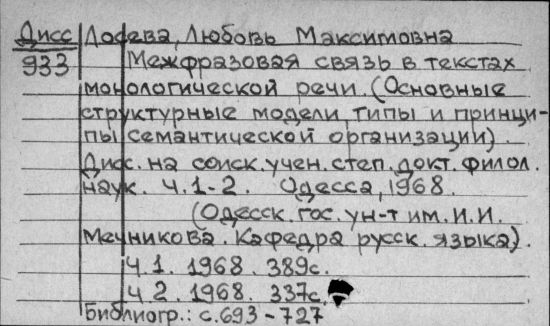 Дисс Лосева, Любовь Максимовна
933 Межфразовая связь в текстах
монологической речи. (Основные
структурные модели, типы и принци-
пы семантической организации).
Дисс. на соиск. учен. степ. докт. филол.
наук. Ч.1-2. Одесса, 1968.
(Одесск. гос. ун-т им. И.И.
Мечникова. Кафедра русск. языка).
Ч.1. 1968. 389с.
Ч.2. 1968. 337с.
Библиогр.: с.693-727